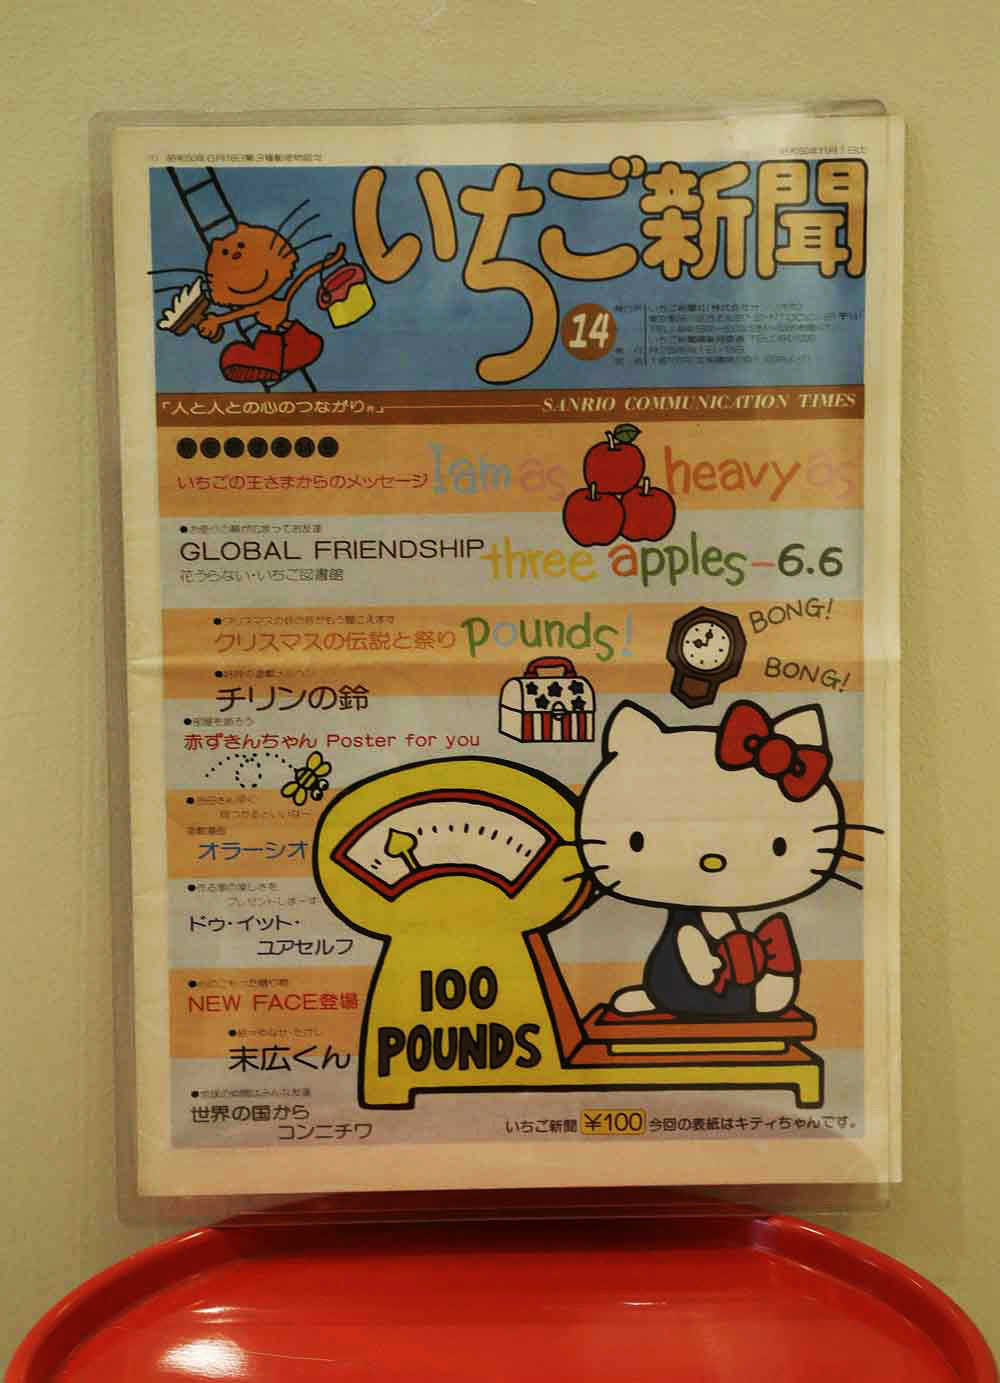 いちご新聞
14
「人と人との心のつながり。」
SANRIO COMMUNICATION TIMES
いちごの王さまからのメッセージ
I am as heavy as
GLOBAL FRIENDSHIP
three apples-6.6
花うらない・いちご図書館
●クリスマスの鈴の音がもう聞こえます
クリスマスの伝説と祭り
pounds!
BONG!
BONG!
チリンの鈴
赤ずきんちゃん Poster for you
オラーシオ
●作る事の楽しさを
プレゼントしまーす
ドゥ・イット・
ユアセルフ
NEW FACE登場
末広くん
世界の国から
コンニチワ
100
POUNDS
いちご新聞 ¥100 今回の表紙はキティちゃんです。